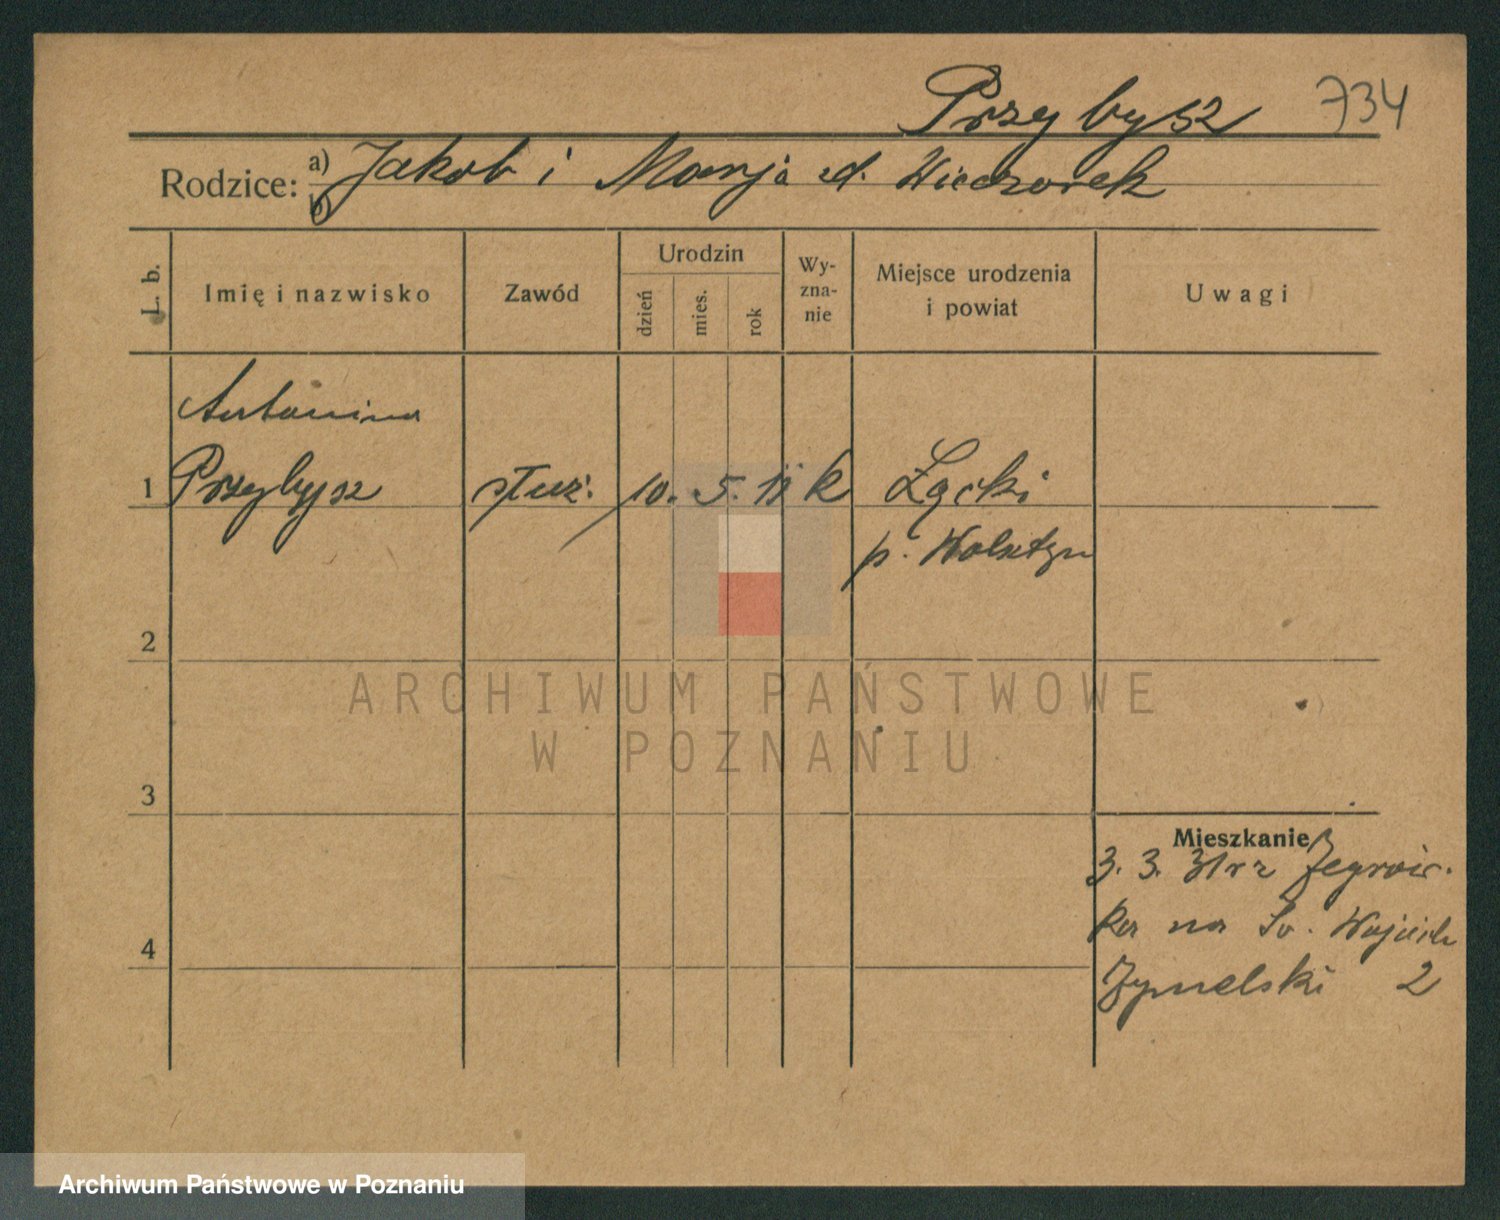 Przybysz 734
Rodzice: a) Jakob i Marja zd. Wieczorek
b)
L. b. Imię i nazwisko Zawód Urodzin dzień mies. rok Wy-zna-nie Miejsce urodzenia i powiat Uwagi
Antonina
1 Przybysz służ. 10. 5. 11 k Łącki
p. Wolsztyn
2
ARCHIWUM PAŃSTWOWE
W POZNANIU
3
Mieszkanie
3. 3. 31 r z
ka na Św. Wojciech
4
2
Archiwum Państwowe w Poznaniu